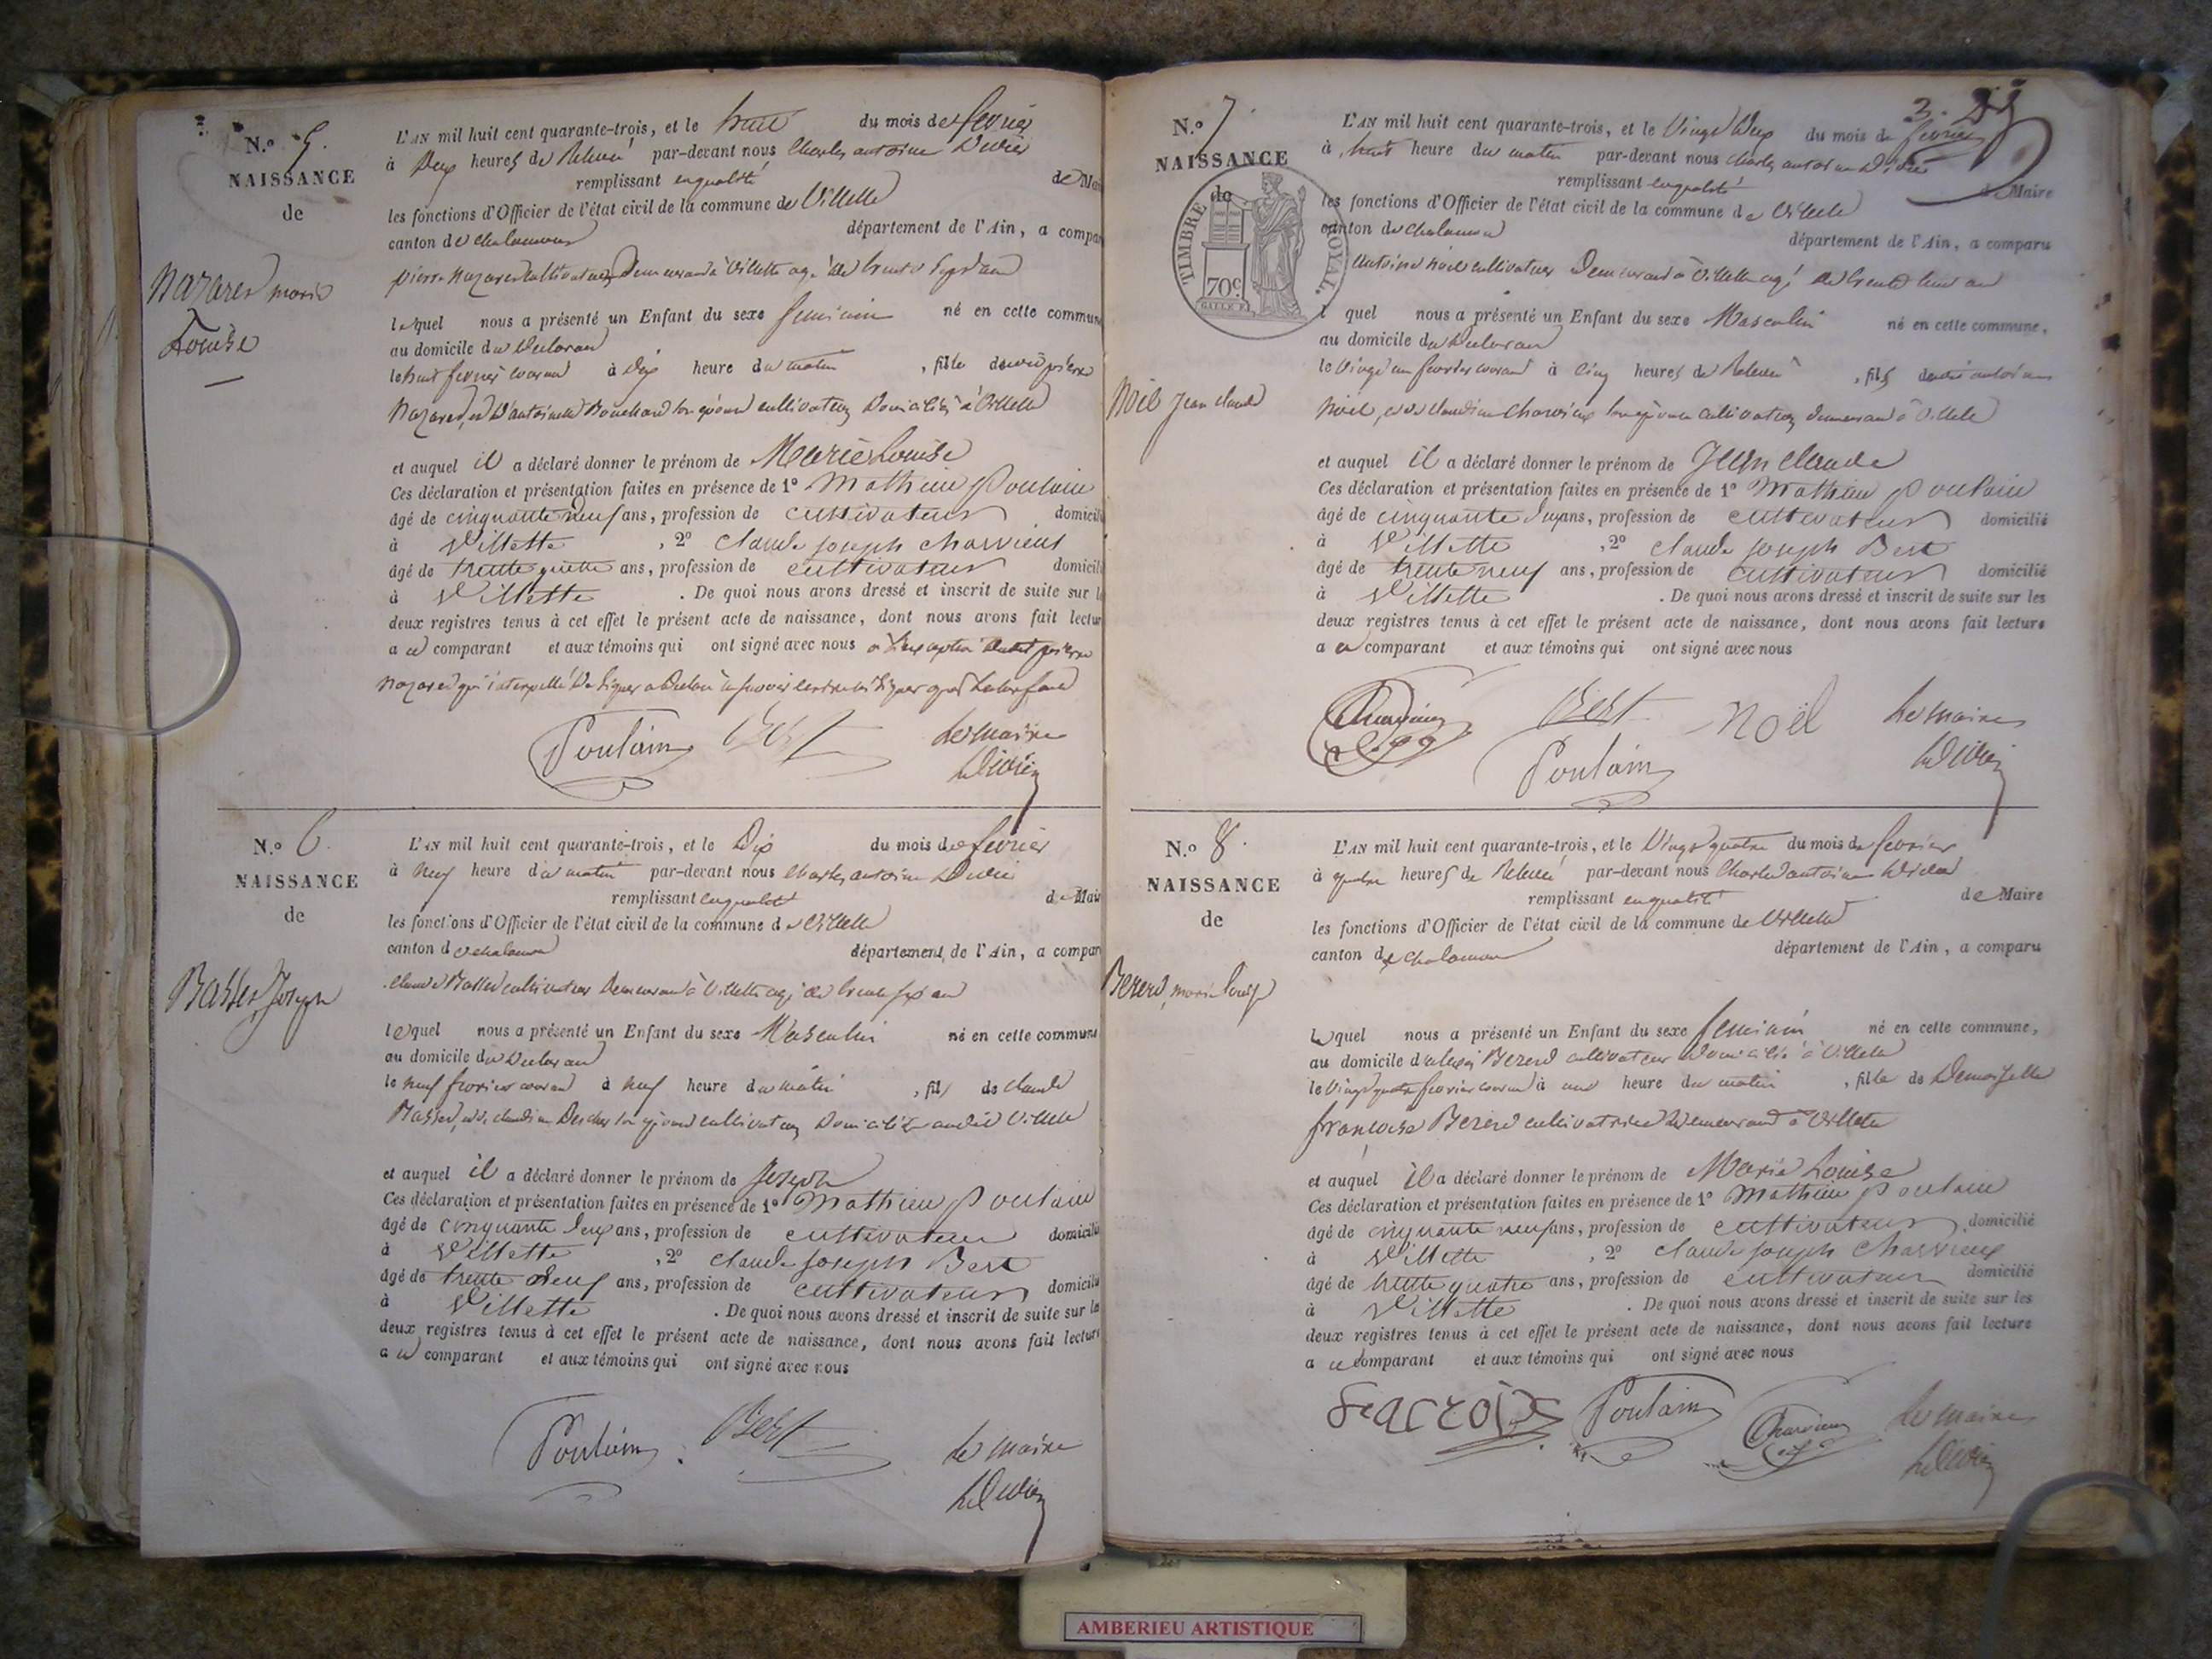 N.º 5.
NAISSANCE
de
Nazaret marie
Louise
L'AN mil huit cent quarante-trois, et le huit du mois de février
à Deux heures de Relevée par-devant nous Charles antoine Divié
remplissant en qualité de Mai
les fonctions d'Officier de l'état civil de la commune de Villette
canton de chalamont département de l'Ain, a compar
pierre Nazaret cultivateur Demeurant à Villette agé de trente Sept ans
lequel nous a présenté un Enfant du sexe feminin né en cette commune
au domicile du Declarant
le huit fevrier courant à Dix heure du matin , fille dudit pierre
Nazaret, et D'antoinette Bouchard son épouse cultivateurs Domiciliés à Villette
et auquel il a déclaré donner le prénom de Marie Louise
Ces déclaration et présentation faites en présence de 1º Mathieu Poulain
âgé de cinquante neuf ans, profession de cultivateur domicili
à Villette , 2º claude joseph charvieux
âgé de trente quatre ans, profession de cultivateur domicili
à Villette . De quoi nous avons dressé et inscrit de suite sur l
deux registres tenus à cet effet le présent acte de naissance, dont nous avons fait lectur
a ce comparant et aux témoins qui ont signé avec nous a L'exception dudit pierre
Nazaret qui interpellé De Signer a Declaré
Poulain Bert Le maire
Divié
N.º 6.
NAISSANCE
de
Basset Joseph
L'AN mil huit cent quarante-trois, et le Dix du mois de fevrier
à neuf heure du matin par-devant nous Charles antoine Divié
remplissant en qualité de Mair
les fonctions d'Officier de l'état civil de la commune de Villette
canton de chalamont département de l'Ain, a compar
claude Basset cultivateur Demeurant à Villette agé de trente six ans
lequel nous a présenté un Enfant du sexe Masculin né en cette commune
au domicile du Declarant
le neuf fevrier courant à neuf heure du matin , fils de claude
Basset, et de claudine son épouse cultivateurs Domiciliés audit Villette
et auquel il a déclaré donner le prénom de Joseph
Ces déclaration et présentation faites en présence de 1º Mathieu Poulain
âgé de cinquante ans, profession de cultivateur domicilié
à Villette , 2º claude joseph Bert
âgé de trente neuf ans, profession de cultivateur domicilié
à Villette . De quoi nous avons dressé et inscrit de suite sur les
deux registres tenus à cet effet le présent acte de naissance, dont nous avons fait lecture
a ce comparant et aux témoins qui ont signé avec nous
Poulain Bert Le maire
Divié
3.
N.º 7.
NAISSANCE
de
TIMBRE ROYAL.
70 c.
Noël Jean claude
L'AN mil huit cent quarante-trois, et le Vingt Deux du mois de février
à huit heure du matin par-devant nous charles antoine Divié
remplissant en qualité de Maire
les fonctions d'Officier de l'état civil de la commune de Villette
canton de chalamont département de l'Ain, a comparu
Antoine noël cultivateur Demeurant à Villette agé de trente huit ans
l quel nous a présenté un Enfant du sexe Masculin né en cette commune,
au domicile du Declarant
le Vingt un fevrier courant à cinq heures de Relevée , fils dudit antoine
Noël, et de claudine Charvieux son épouse cultivateurs demeurant à Villette
et auquel il a déclaré donner le prénom de Jean claude
Ces déclaration et présentation faites en présence de 1º Mathieu Poulain
âgé de cinquante ans, profession de cultivateur domicilié
à Villette , 2º claude joseph Bert
âgé de trente neuf ans, profession de cultivateur domicilié
à Villette . De quoi nous avons dressé et inscrit de suite sur les
deux registres tenus à cet effet le présent acte de naissance, dont nous avons fait lecture
a ce comparant et aux témoins qui ont signé avec nous
Charvieux Bert Noël Le maire
Poulain Divié
N.º 8.
NAISSANCE
de
Bererd, marie louise
L'AN mil huit cent quarante-trois, et le Vingt quatre du mois de fevrier
à quatre heures de Relevée par-devant nous Charles antoine Divié
remplissant en qualité de Maire
les fonctions d'Officier de l'état civil de la commune de Villette
canton de chalamont département de l'Ain, a comparu
lequel nous a présenté un Enfant du sexe feminin né en cette commune,
au domicile d'alexis Bererd cultivateur Domicilié à Villette
le Vingt quatre fevrier courant à une heure du matin , fille de Demoiselle
françoise Bererd cultivatrice Demeurant à Villette
et auquel il a déclaré donner le prénom de Marie Louise
Ces déclaration et présentation faites en présence de 1º Mathieu Poulain
âgé de cinquante neuf ans, profession de cultivateur domicilié
à Villette , 2º claude joseph Charvieux
âgé de trente quatre ans, profession de cultivateur domicilié
à Villette . De quoi nous avons dressé et inscrit de suite sur les
deux registres tenus à cet effet le présent acte de naissance, dont nous avons fait lecture
a ce comparant et aux témoins qui ont signé avec nous
Poulain Charvieux Le maire
Divié
AMBERIEU ARTISTIQUE